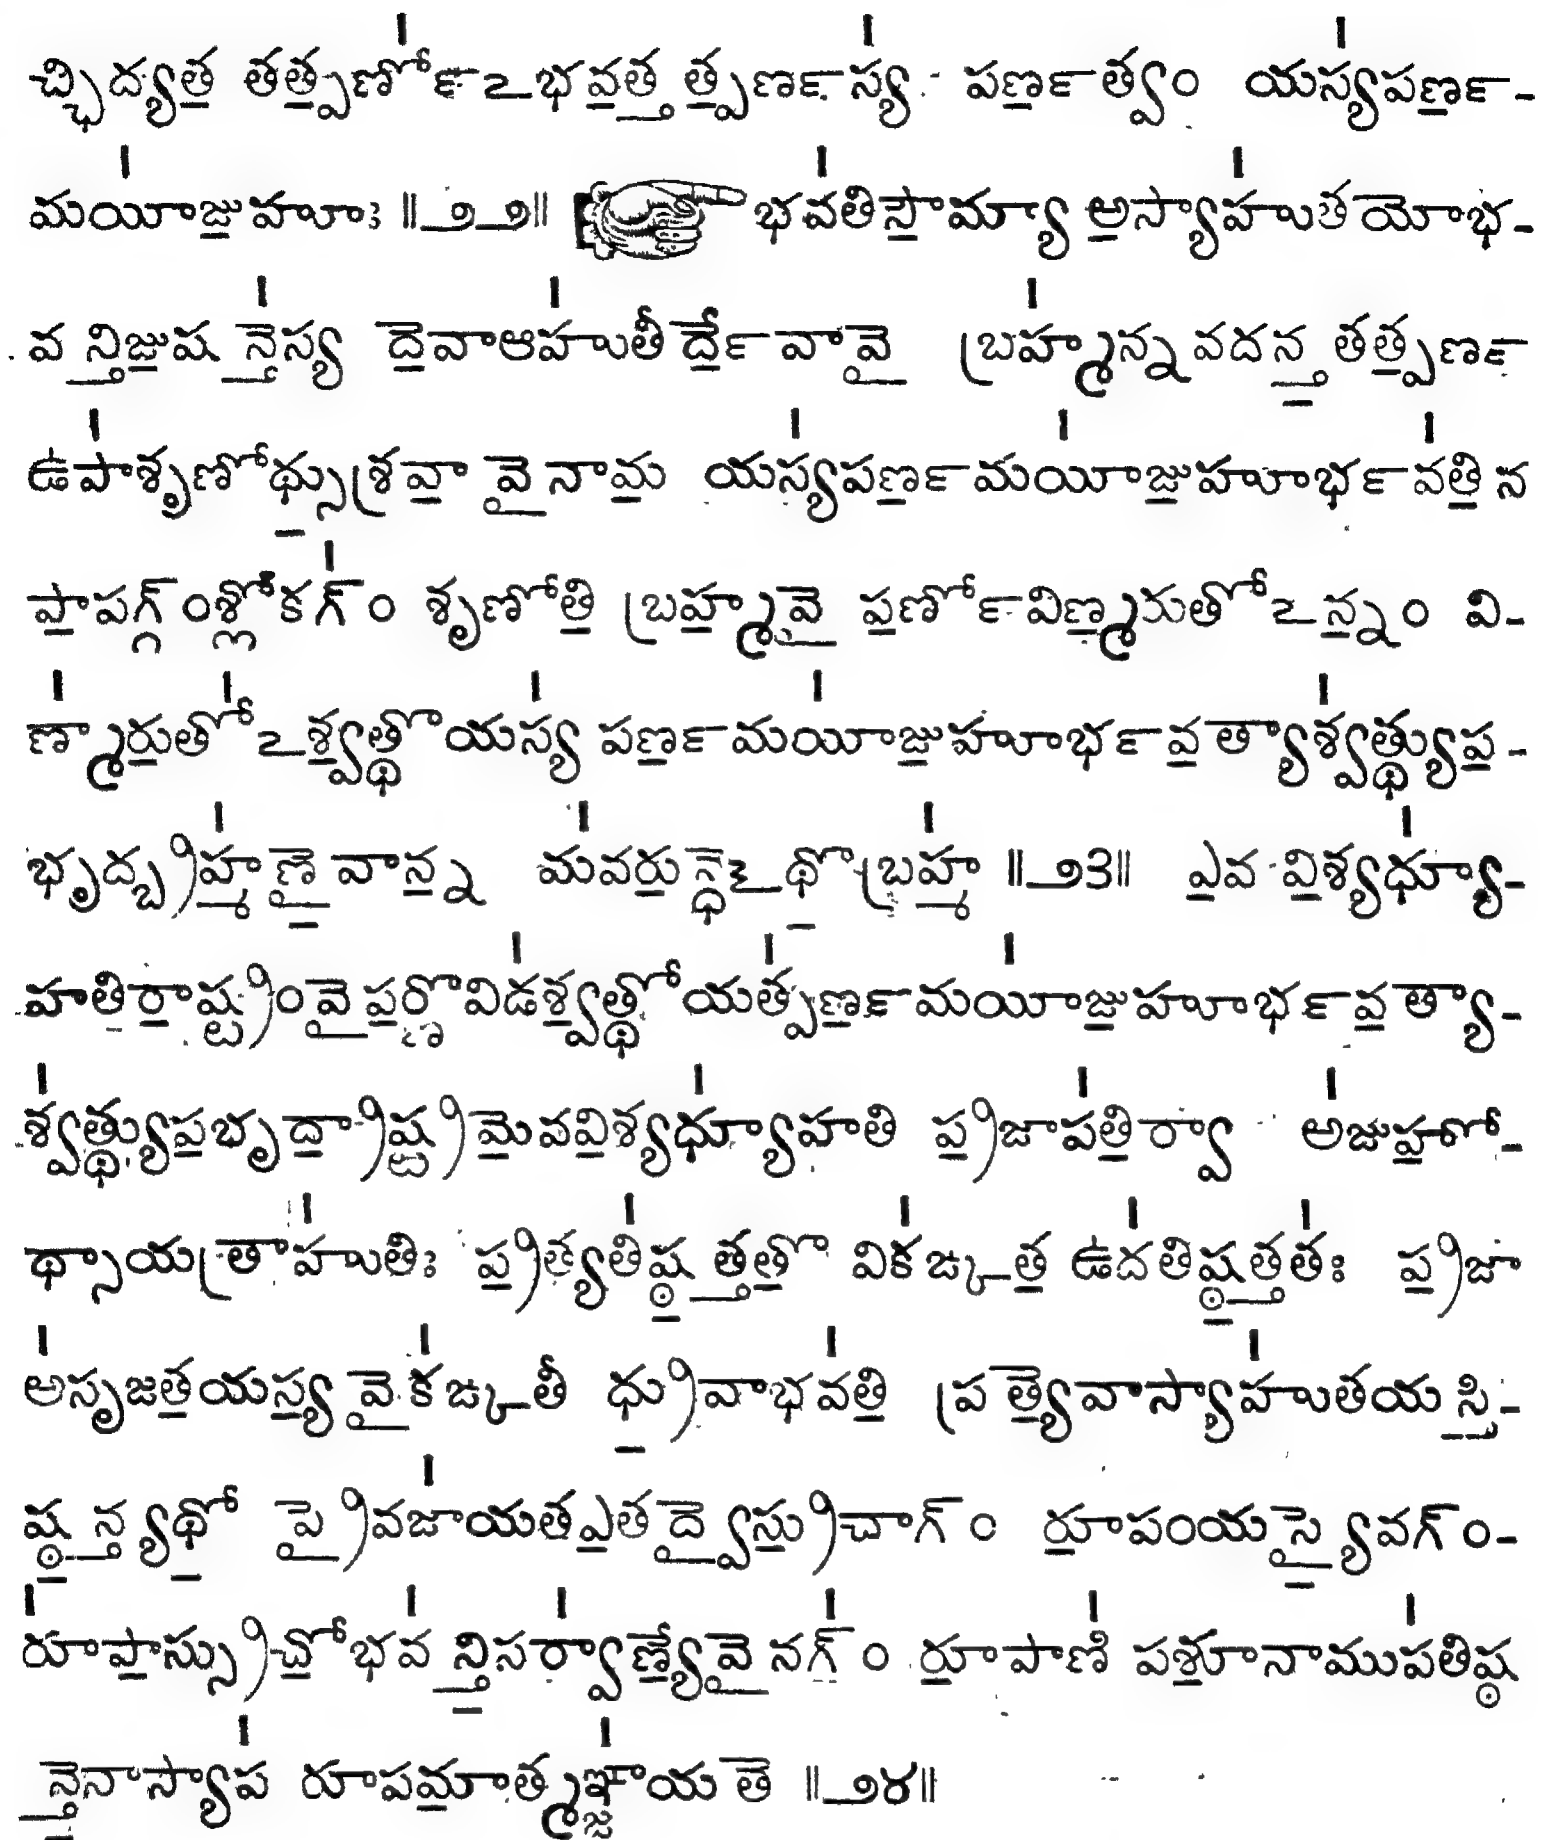 చ్ఛిద్యత తత్పర్ణోఽభవత్త త్పర్ణస్య పర్ణత్వం యస్యపర్ణ-
మయీజుహూః ॥౨౨॥ భవతిసౌమ్యా అస్యాహుతయోభ-
వ న్తిజుష న్తేస్య దేవాఆహుతీర్దేవావై బ్రహ్మన్నవదన్త తత్పర్ణ
ఉపాశృణోథ్సుశ్రవా వై నామ యస్యపర్ణమయీజుహూర్భవతి న
పాపగ్గ్‌ంశ్లోకగ్‌ం శృణోతి బ్రహ్మవై పర్ణోవిణ్మరుతోఽన్నం వి-
ణ్మారుతోఽశ్వత్థోయస్య పర్ణమయీజుహూర్భవత్యాశ్వత్థ్యుప-
భృద్బ్రహ్మణై వాన్న మవరున్ధేఽథోబ్రహ్మ ॥౨౩॥ ఏవ విశ్యధ్యూ-
హతి రాష్ట్రంవై పర్ణోవిడశ్వత్థోయత్పర్ణమయీజుహూర్భవత్యా-
శ్వత్థ్యుపభృద్రాష్ట్రమేవవిశ్యధ్యూహతి ప్రజాపతిర్వా అజుహో-
థ్సాయత్రాహుతిః ప్రత్యతిష్ఠ త్తతో వికఙ్కత ఉదతిష్ఠత్తతః ప్రజా
అసృజతయస్య వైకఙ్కతీ ధ్రువాభవతి ప్రత్యేవాస్యాహుతయ స్తి-
ష్ఠ న్త్యథో ప్రైవజాయతఏతద్వైస్రుచాగ్‌ం రూపంయస్యైవగ్‌ం-
రూపాస్స్రుచోభవ న్తిసర్వాణ్యేవై నగ్‌ం రూపాణి పశూనాముపతిష్ఠ
న్తేనాస్యాప రూపమాత్మఞ్జాయ తే ॥౨౪॥